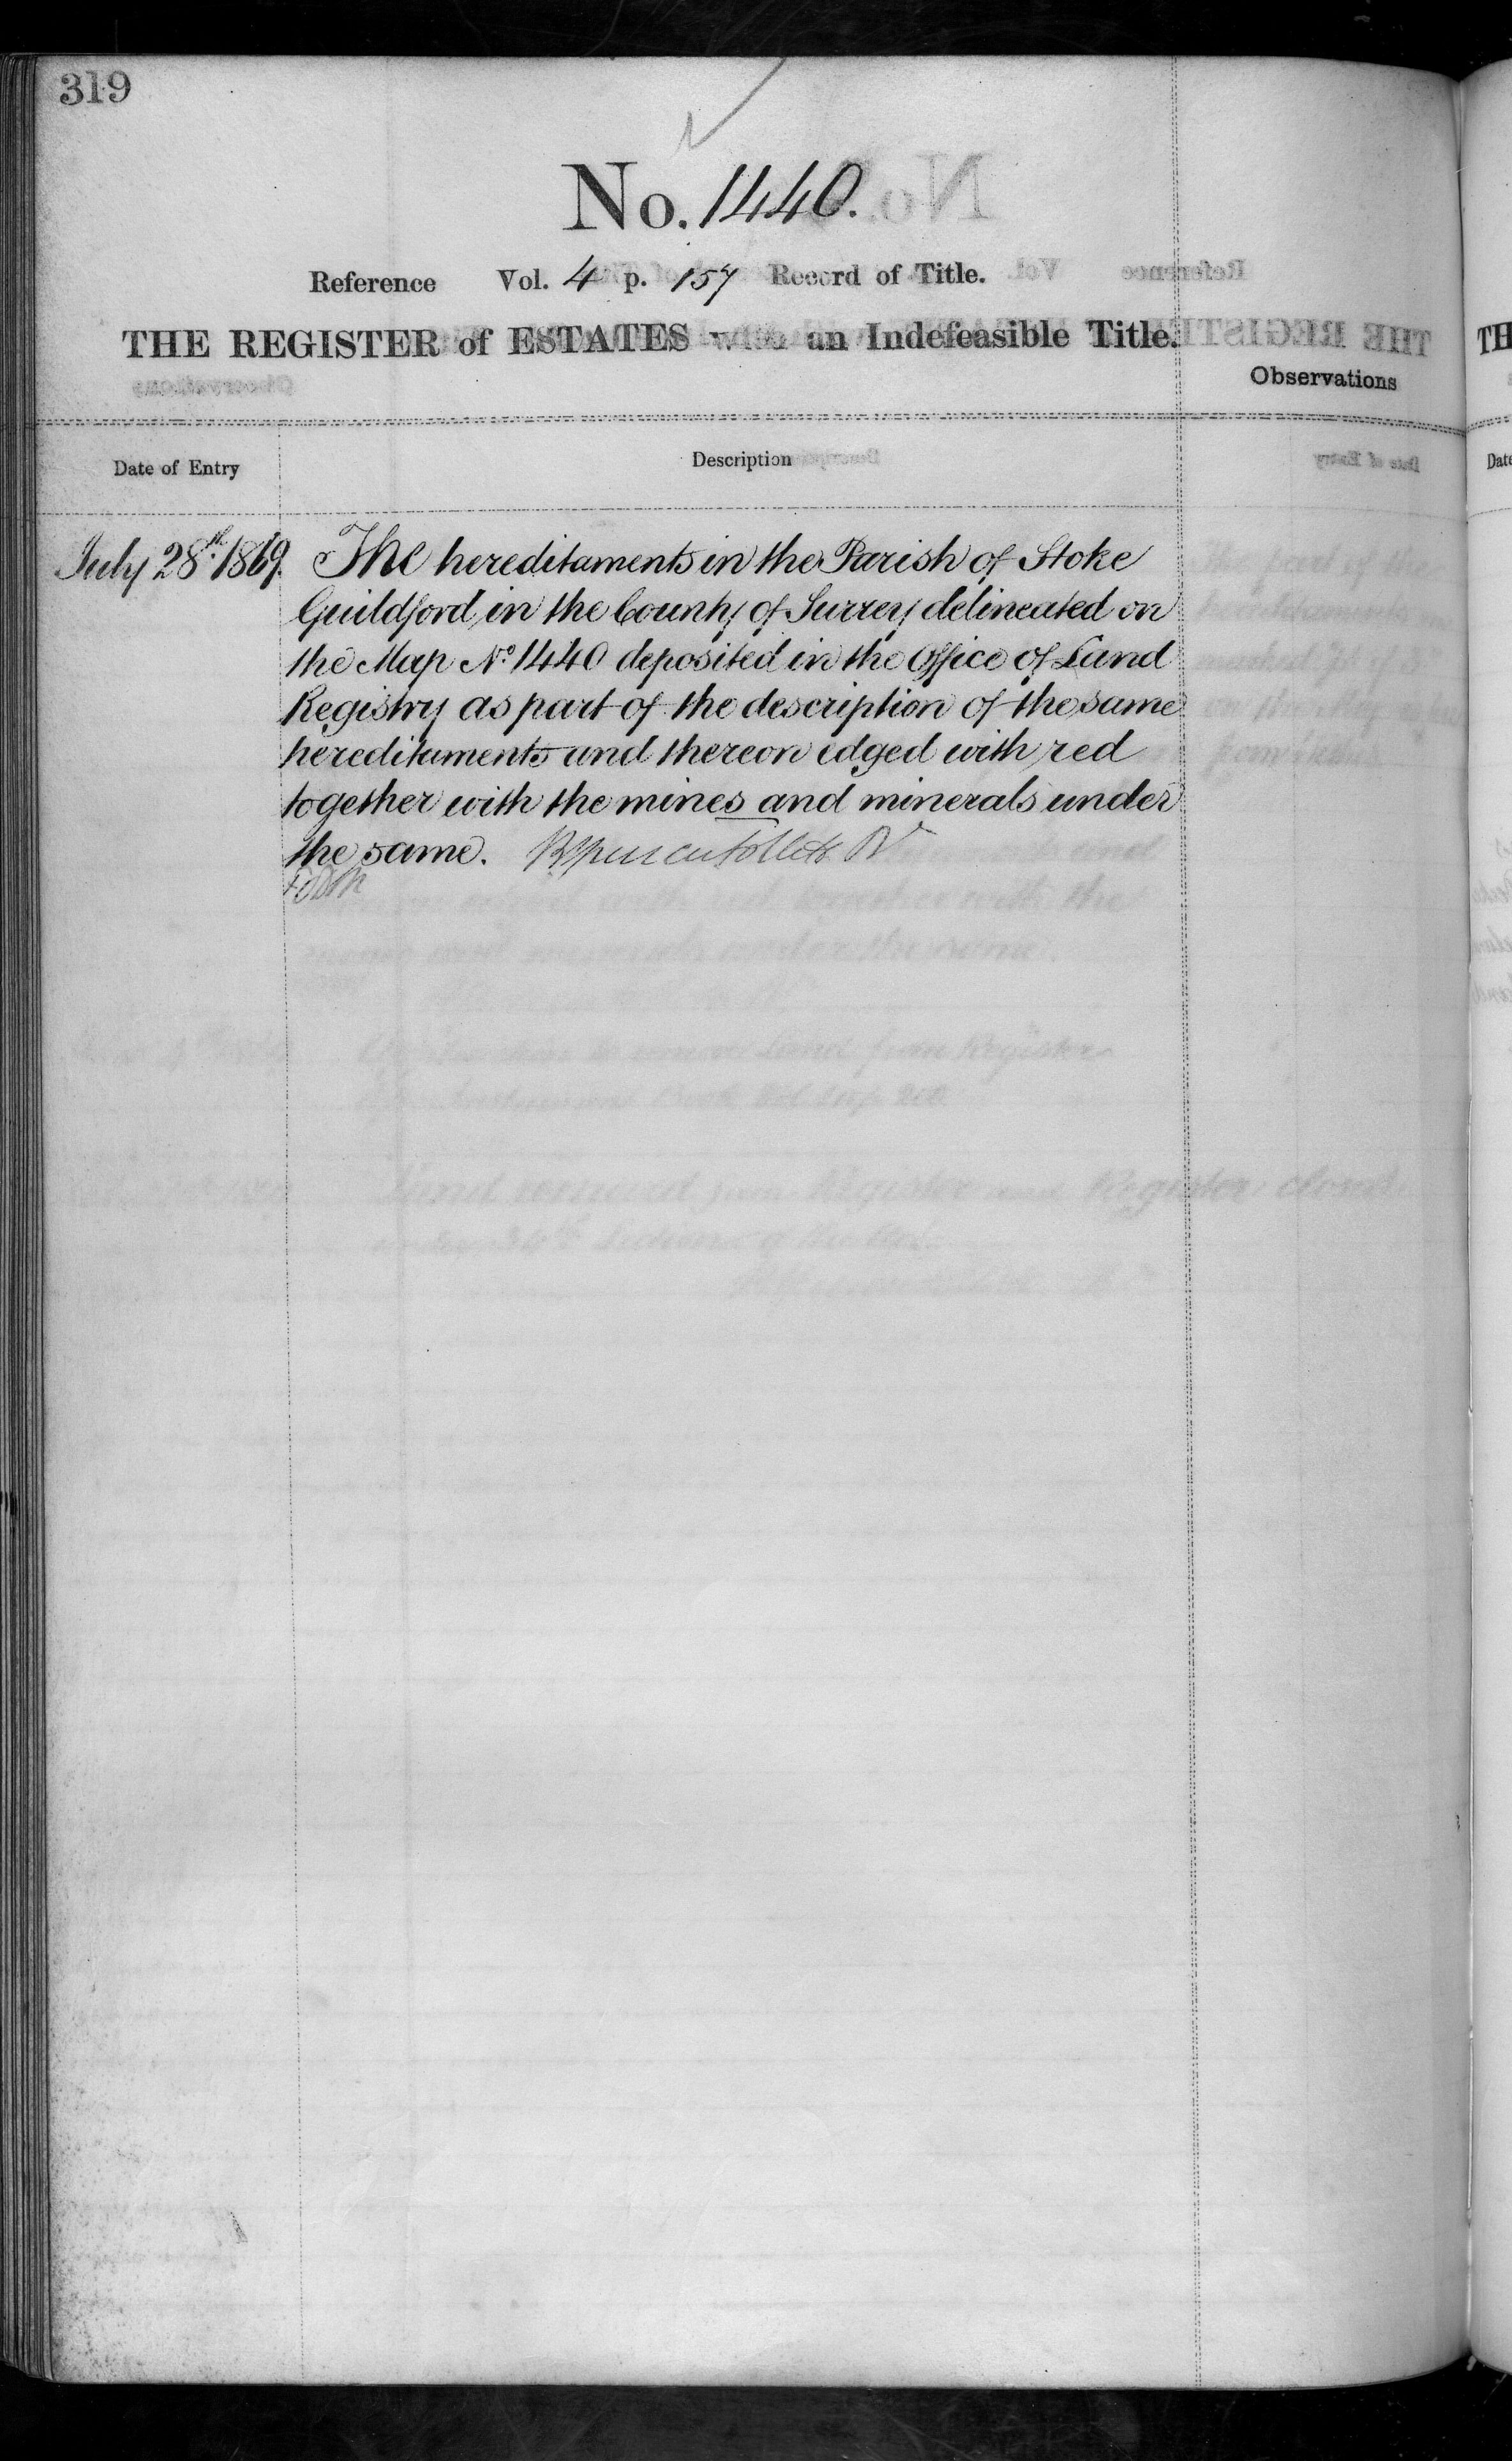 319
No. 1440.
Reference Vol. 4 p. 157 Record of Title.
THE REGISTER of ESTATES with an Indefeasible Title.
Observations
Date of Entry
Description
July 28th. 1869. The hereditaments in the Parish of Stoke
Guildford, in the County of Surrey delineated on
the Map No. 1440 deposited in the Office of Land
Registry as part of the description of the same
hereditaments and thereon edged with red
together with the mines and minerals under
the same.